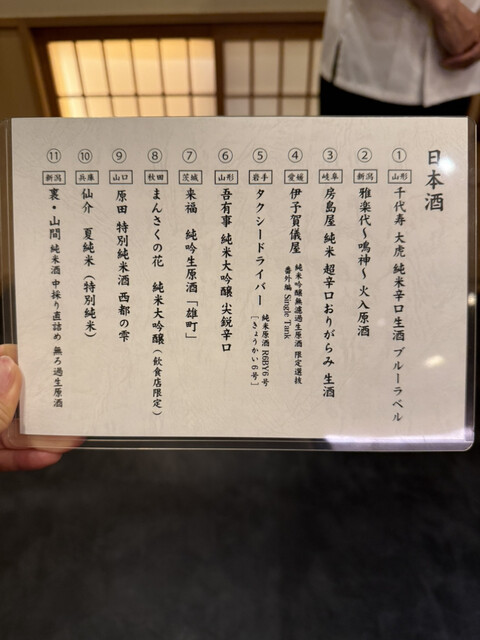 日本酒
① 山形 千代寿 大虎 純米辛口生酒 ブルーラベル
② 新潟 雅楽代〜鳴神〜 火入原酒
③ 岐阜 房島屋 純米 超辛口おりがらみ 生酒
④ 愛媛 伊予賀儀屋 純米吟醸無濾過生原酒 限定選抜
番外編 Single Tank
⑤ 岩手 タクシードライバー 純米原酒 R6BY6号
[きょうかい6号]
⑥ 山形 吾有事 純米大吟醸 尖鋭辛口
⑦ 茨城 来福 純吟生原酒「雄町」
⑧ 秋田 まんさくの花 純米大吟醸(飲食店限定)
⑨ 山口 原田 特別純米酒 西都の雫
⑩ 兵庫 仙介 夏純米(特別純米)
⑪ 新潟 裏・山間 純米酒 中採り直詰め 無ろ過生原酒